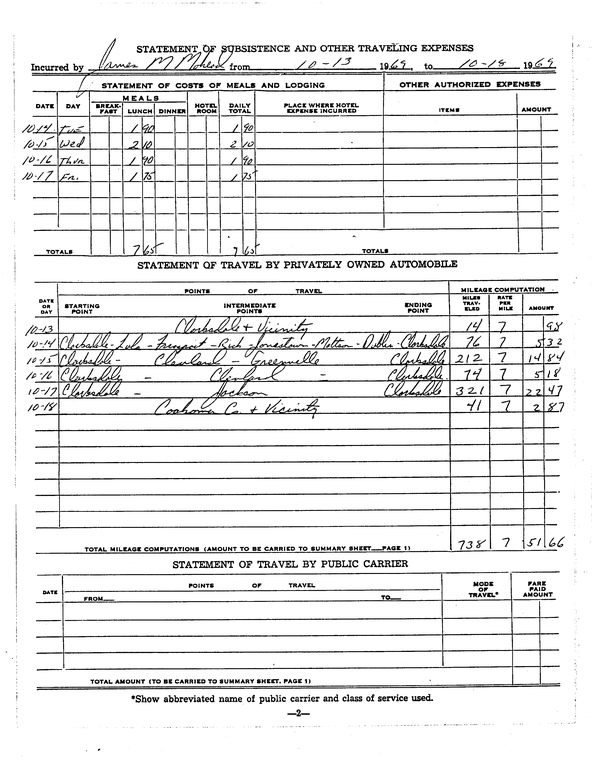 STATEMENT OF SUBSISTENCE AND OTHER TRAVELING EXPENSES
Incurred by James M Mohead from 10-13 1969 to 10-18 1969
STATEMENT OF COSTS OF MEALS AND LODGING OTHER AUTHORIZED EXPENSES
DATE DAY MEALS BREAK-FAST LUNCH DINNER HOTEL ROOM DAILY TOTAL PLACE WHERE HOTEL EXPENSE INCURRED ITEMS AMOUNT
10-14 Tue 1 90 1 90
10-15 Wed 2 10 2 10
10-16 Thur 1 90 1 90
10-17 Fr. 1 75 1 75
TOTALS 7 65 7 65 TOTALS
STATEMENT OF TRAVEL BY PRIVATELY OWNED AUTOMOBILE
POINTS OF TRAVEL MILEAGE COMPUTATION
DATE OR DAY STARTING POINT INTERMEDIATE POINTS ENDING POINT MILES TRAV-ELED RATE PER MILE AMOUNT
10-13 Clarksdale & Vicinity 14 7 98
10-14 Clarksdale - Lula - Farrell - Rich - Jonestown - Mattson - Dublin - Clarksdale 76 7 5 32
10-15 Clarksdale - Cleveland - Greenville Clarksdale 212 7 14 84
10-16 Clarksdale - Cleveland - Clarksdale 74 7 5 18
10-17 Clarksdale - Jackson Clarksdale 321 7 22 47
10-18 Coahoma Co. & Vicinity 41 7 2 87
TOTAL MILEAGE COMPUTATIONS (AMOUNT TO BE CARRIED TO SUMMARY SHEET—PAGE 1) 738 7 51.66
STATEMENT OF TRAVEL BY PUBLIC CARRIER
DATE POINTS OF TRAVEL MODE OF TRAVEL* FARE PAID AMOUNT
FROM— TO—
TOTAL AMOUNT (TO BE CARRIED TO SUMMARY SHEET, PAGE 1)
*Show abbreviated name of public carrier and class of service used.
—2—